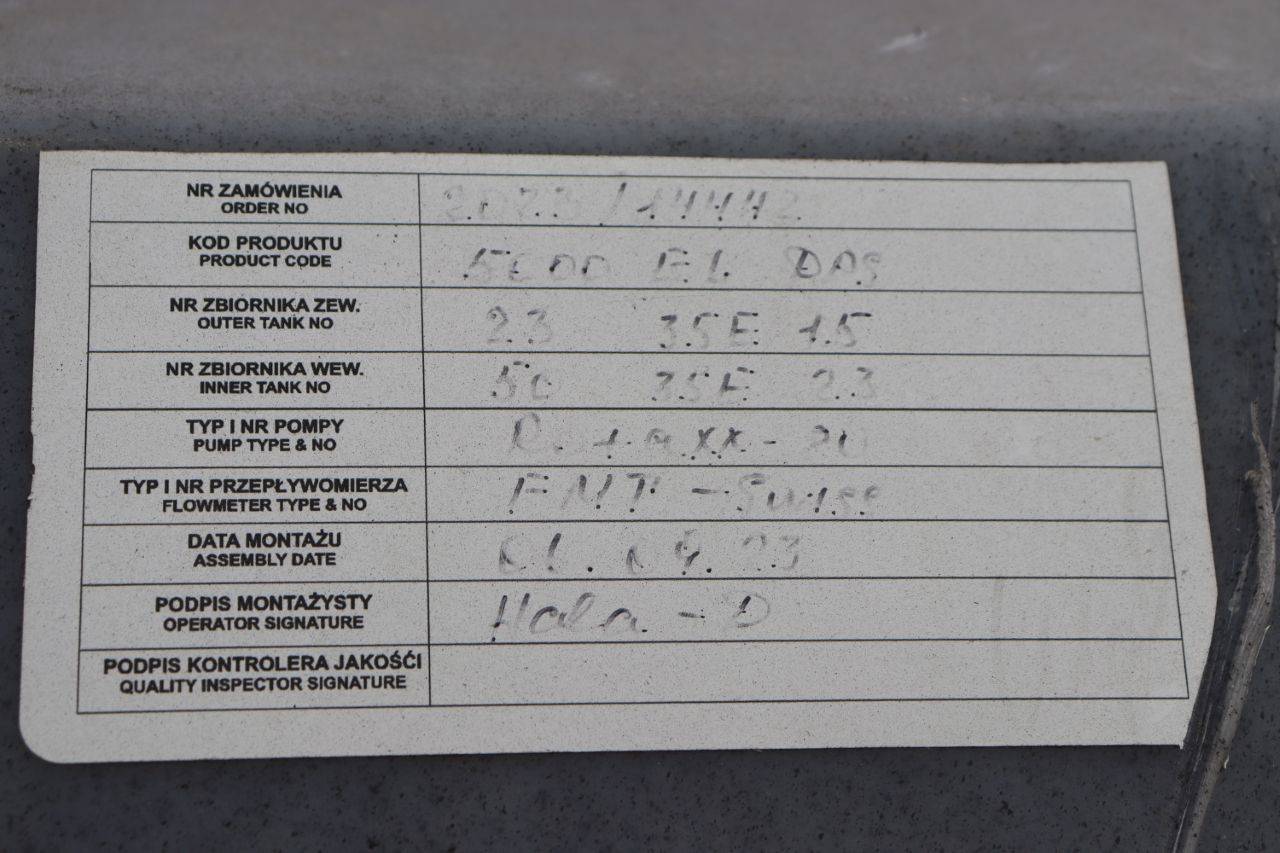 NR ZAMÓWIENIA
ORDER NO
2023/14442
KOD PRODUKTU
PRODUCT CODE
5000 EL
NR ZBIORNIKA ZEW.
OUTER TANK NO
23 35E 15
NR ZBIORNIKA WEW.
INNER TANK NO
50 35E 23
TYP I NR POMPY
PUMP TYPE & NO
TYP I NR PRZEPŁYWOMIERZA
FLOWMETER TYPE & NO
FMT - Swiss
DATA MONTAŻU
ASSEMBLY DATE
PODPIS MONTAŻYSTY
OPERATOR SIGNATURE
Hala - D
PODPIS KONTROLERA JAKOŚĆI
QUALITY INSPECTOR SIGNATURE